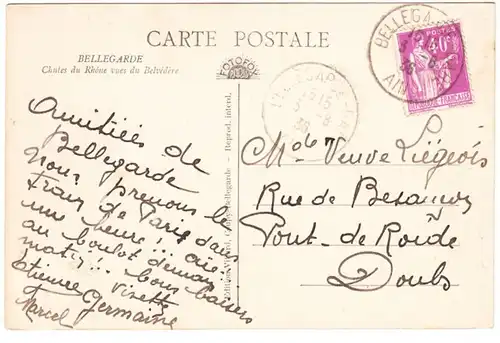 CARTE POSTALE
BELLEGARDE
Chutes du Rhône vues du Belvédère
FOTOFOX
BELLEGA
AIN
40c
POSTES
RÉPUBLIQUE FRANÇAISE
15
Reprod. interd.
Bellegarde
Amitiées de
Bellegarde
Nous prenons le
train de Paris dans
une heure!..
au boulot demain
matin!.. bons baisers
Etienne Germaine
Marcel
Mde Veuve Liégeois
Rue de Besançon
Pont-de-Roide
Doubs